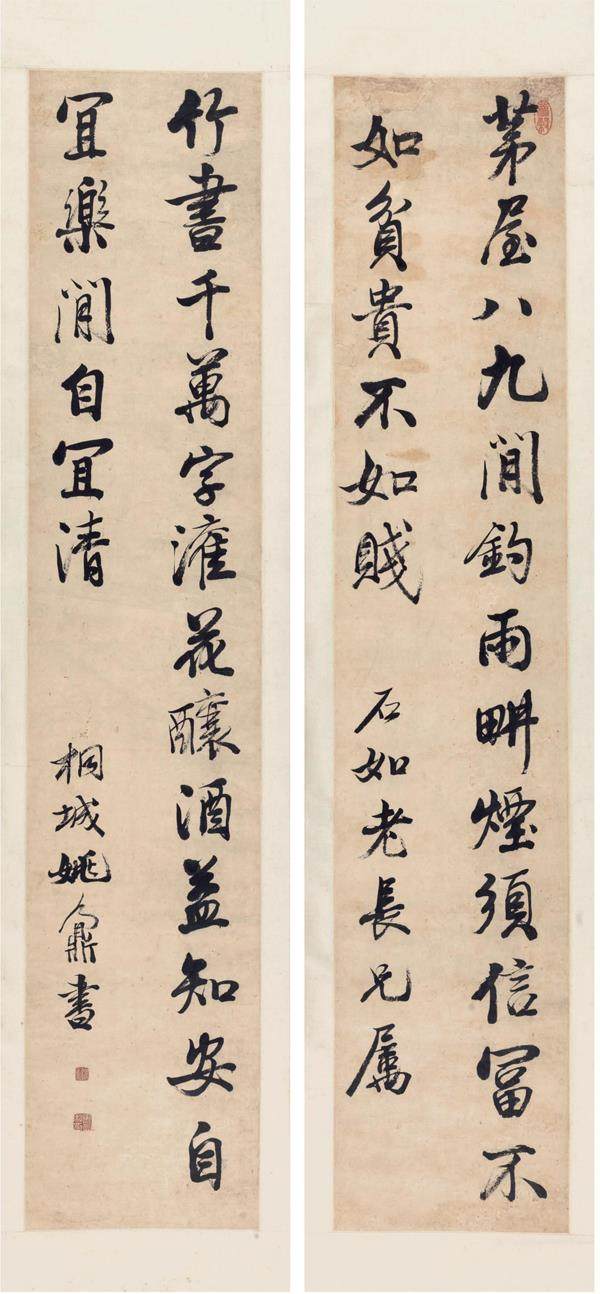 茅屋八九間釣雨畊煙須信富不
如貧貴不如賤
石如老長兄属
竹書千萬字灌花釀酒益知安自
冝樂閒自冝清
桐城姚鼐書